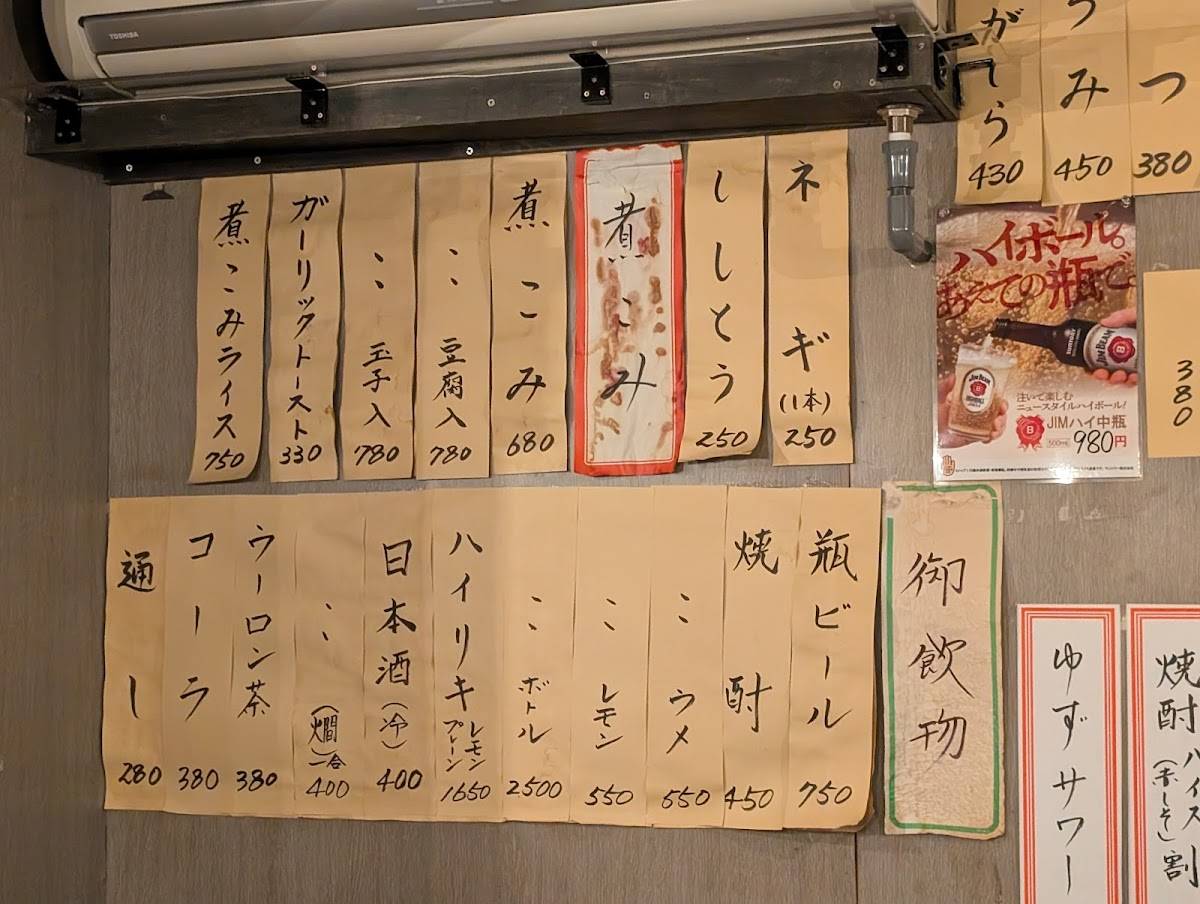 TOSHIBA
がしら
430
うみ
450
つ
380
ネギ
(1本)
250
ししとう
250
煮こみ
煮こみ
680
〃 豆腐入
780
〃 玉子入
780
ガーリックトースト
330
煮こみライス
750
ハイボール。
あえての瓶で。
JIM BEAM
JIM BEAM
注いで楽しむ
ニュースタイルハイボール!
JIMハイ中瓶
500ml 980円
380
御飲物
瓶ビール
750
焼酎
450
〃 ウメ
550
〃 レモン
550
〃 ボトル
2500
ハイリキ
レモン
プレーン
1650
日本酒(冷)
400
〃 (燗)一合
400
ウーロン茶
380
コーラ
380
通し
280
ゆずサワー
焼酎ハイス割
(赤しそ)